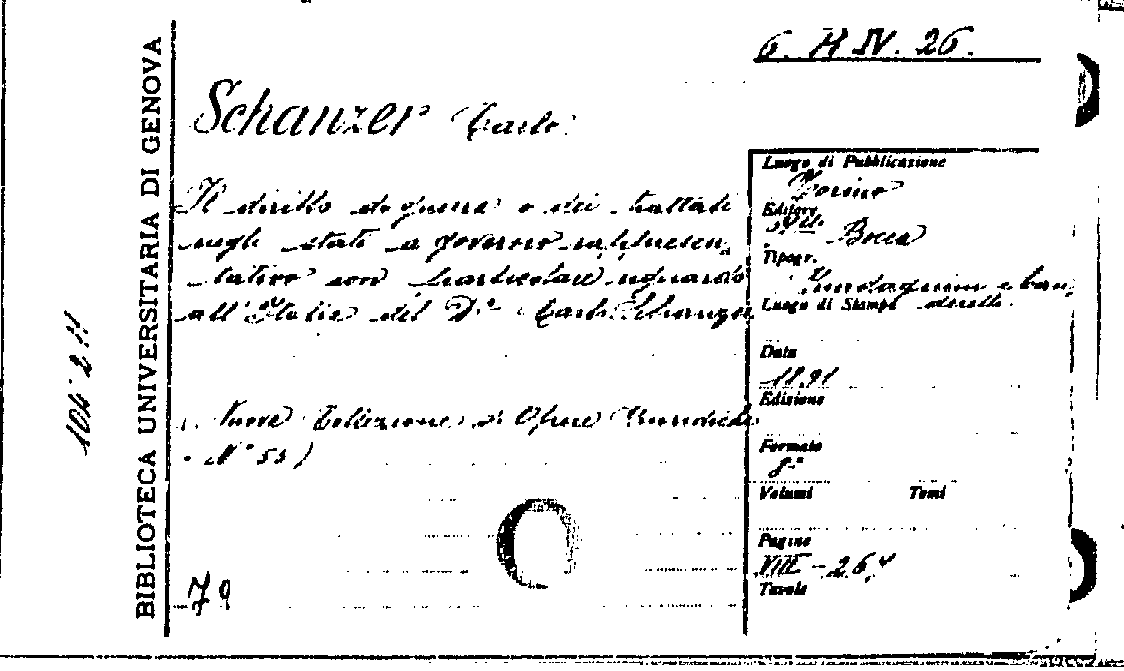 6. A IV. 26.
BIBLIOTECA UNIVERSITARIA DI GENOVA
Schanzer Carlo.
Il diritto di guerra e dei trattati
negli stati a governo rappresen
tativo con particolare riguardo
all'Italia del Dr. Carlo Schanzer
(Nuova Collezione di Opere Giuridiche
N° 53)
79
Luogo di Pubblicazione
Torino
Editore
Flli Bocca
Tipogr.
Luogo di Stampa
Data
1891
Edizione
Formato
8.°
Volumi Tomi
Pagine
VIII - 264
Tavole